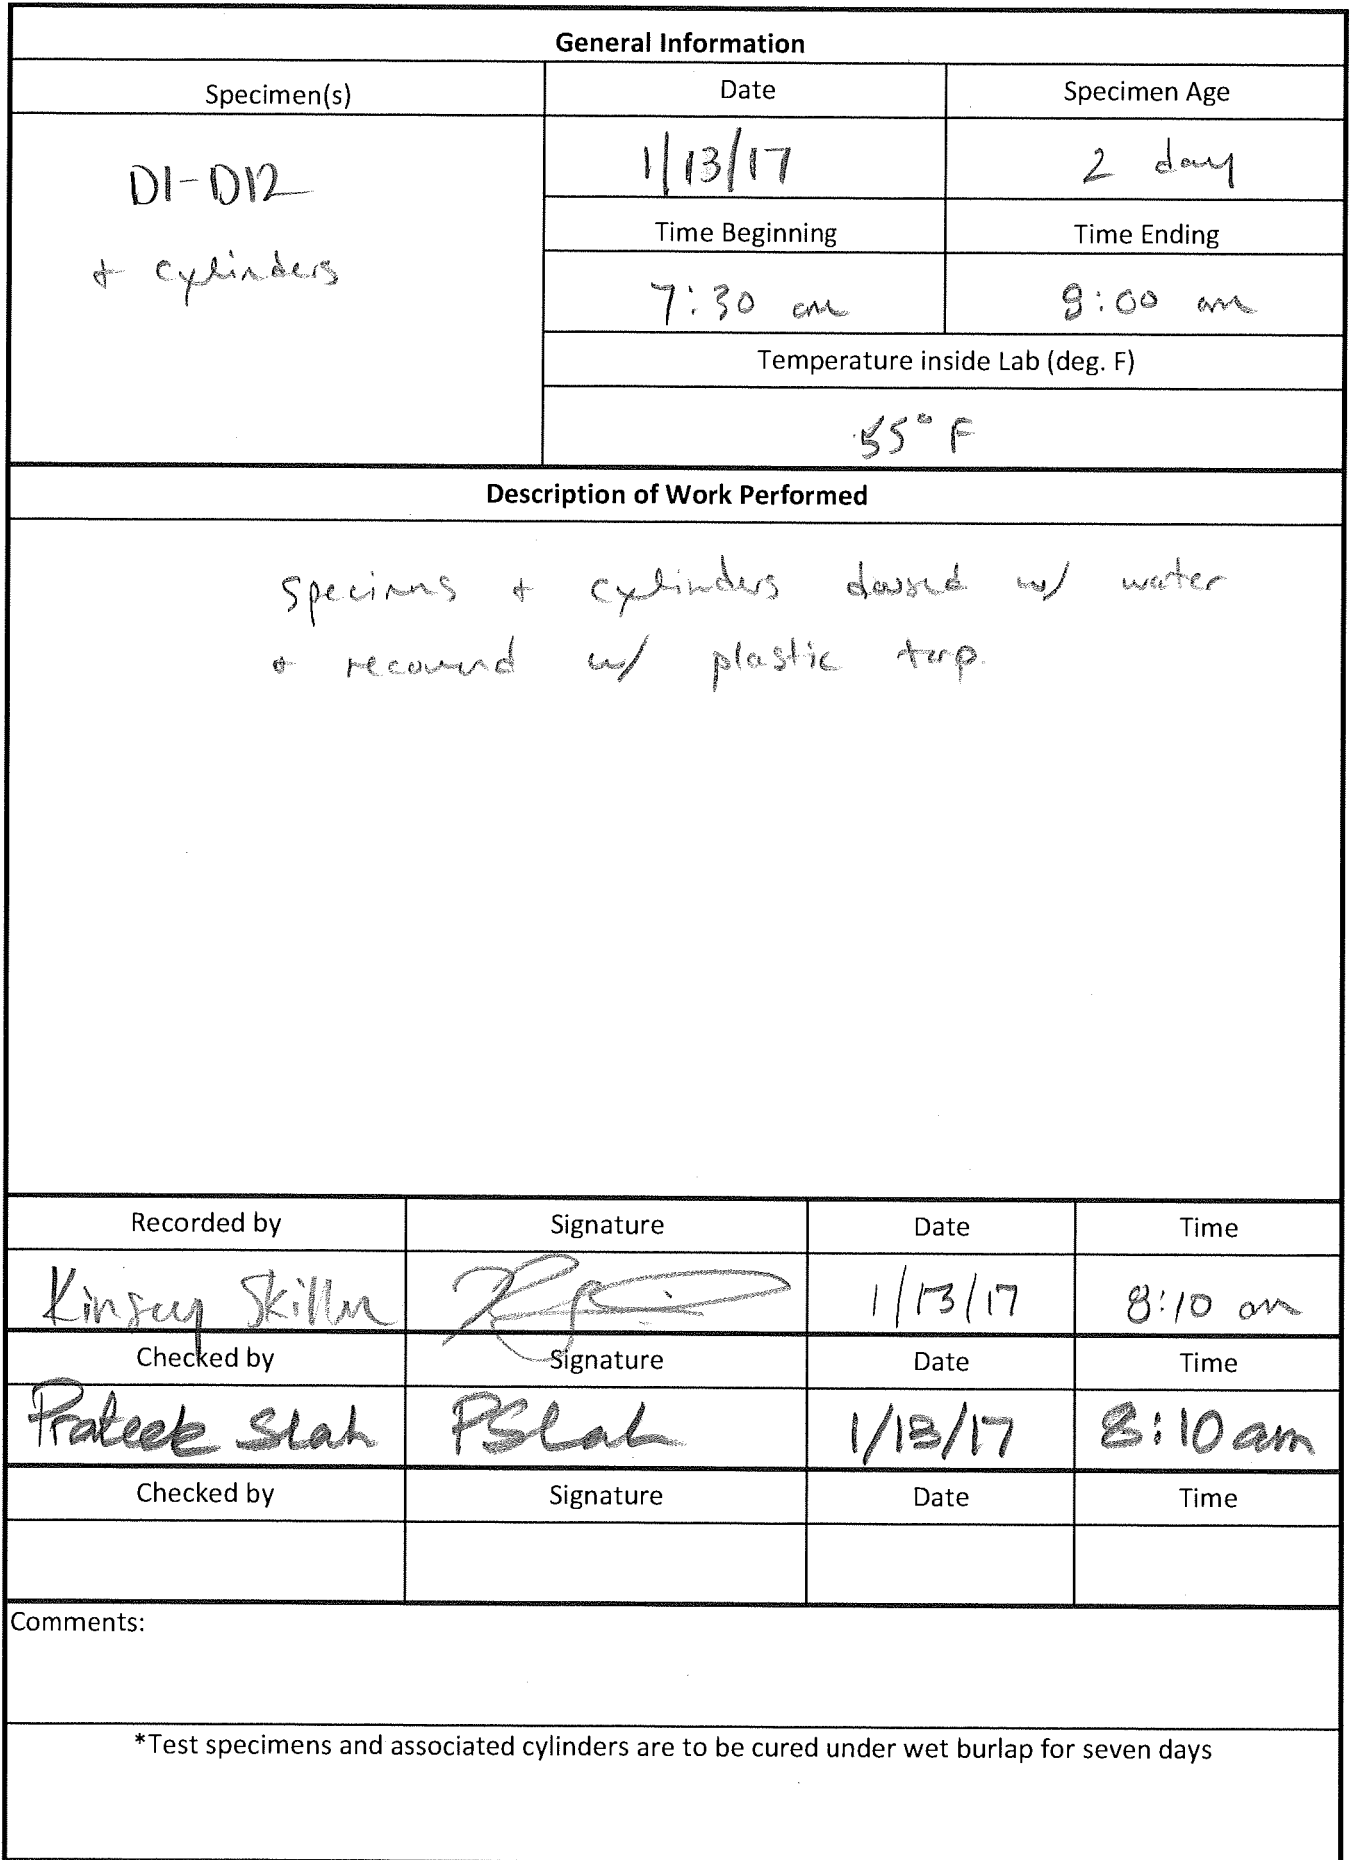 General Information
Specimen(s) Date Specimen Age
D1-D12 1/13/17 2 day
+ cylinders
Time Beginning Time Ending
7:30 am 8:00 am
Temperature inside Lab (deg. F)
55° F
Description of Work Performed
Specimens + cylinders doused w/ water
+ recovered w/ plastic tarp.
Recorded by Signature Date Time
Kinsey Skillen 1/13/17 8:10 am
Checked by Signature Date Time
Prateek Shah PShah 1/13/17 8:10 am
Checked by Signature Date Time
Comments:
*Test specimens and associated cylinders are to be cured under wet burlap for seven days